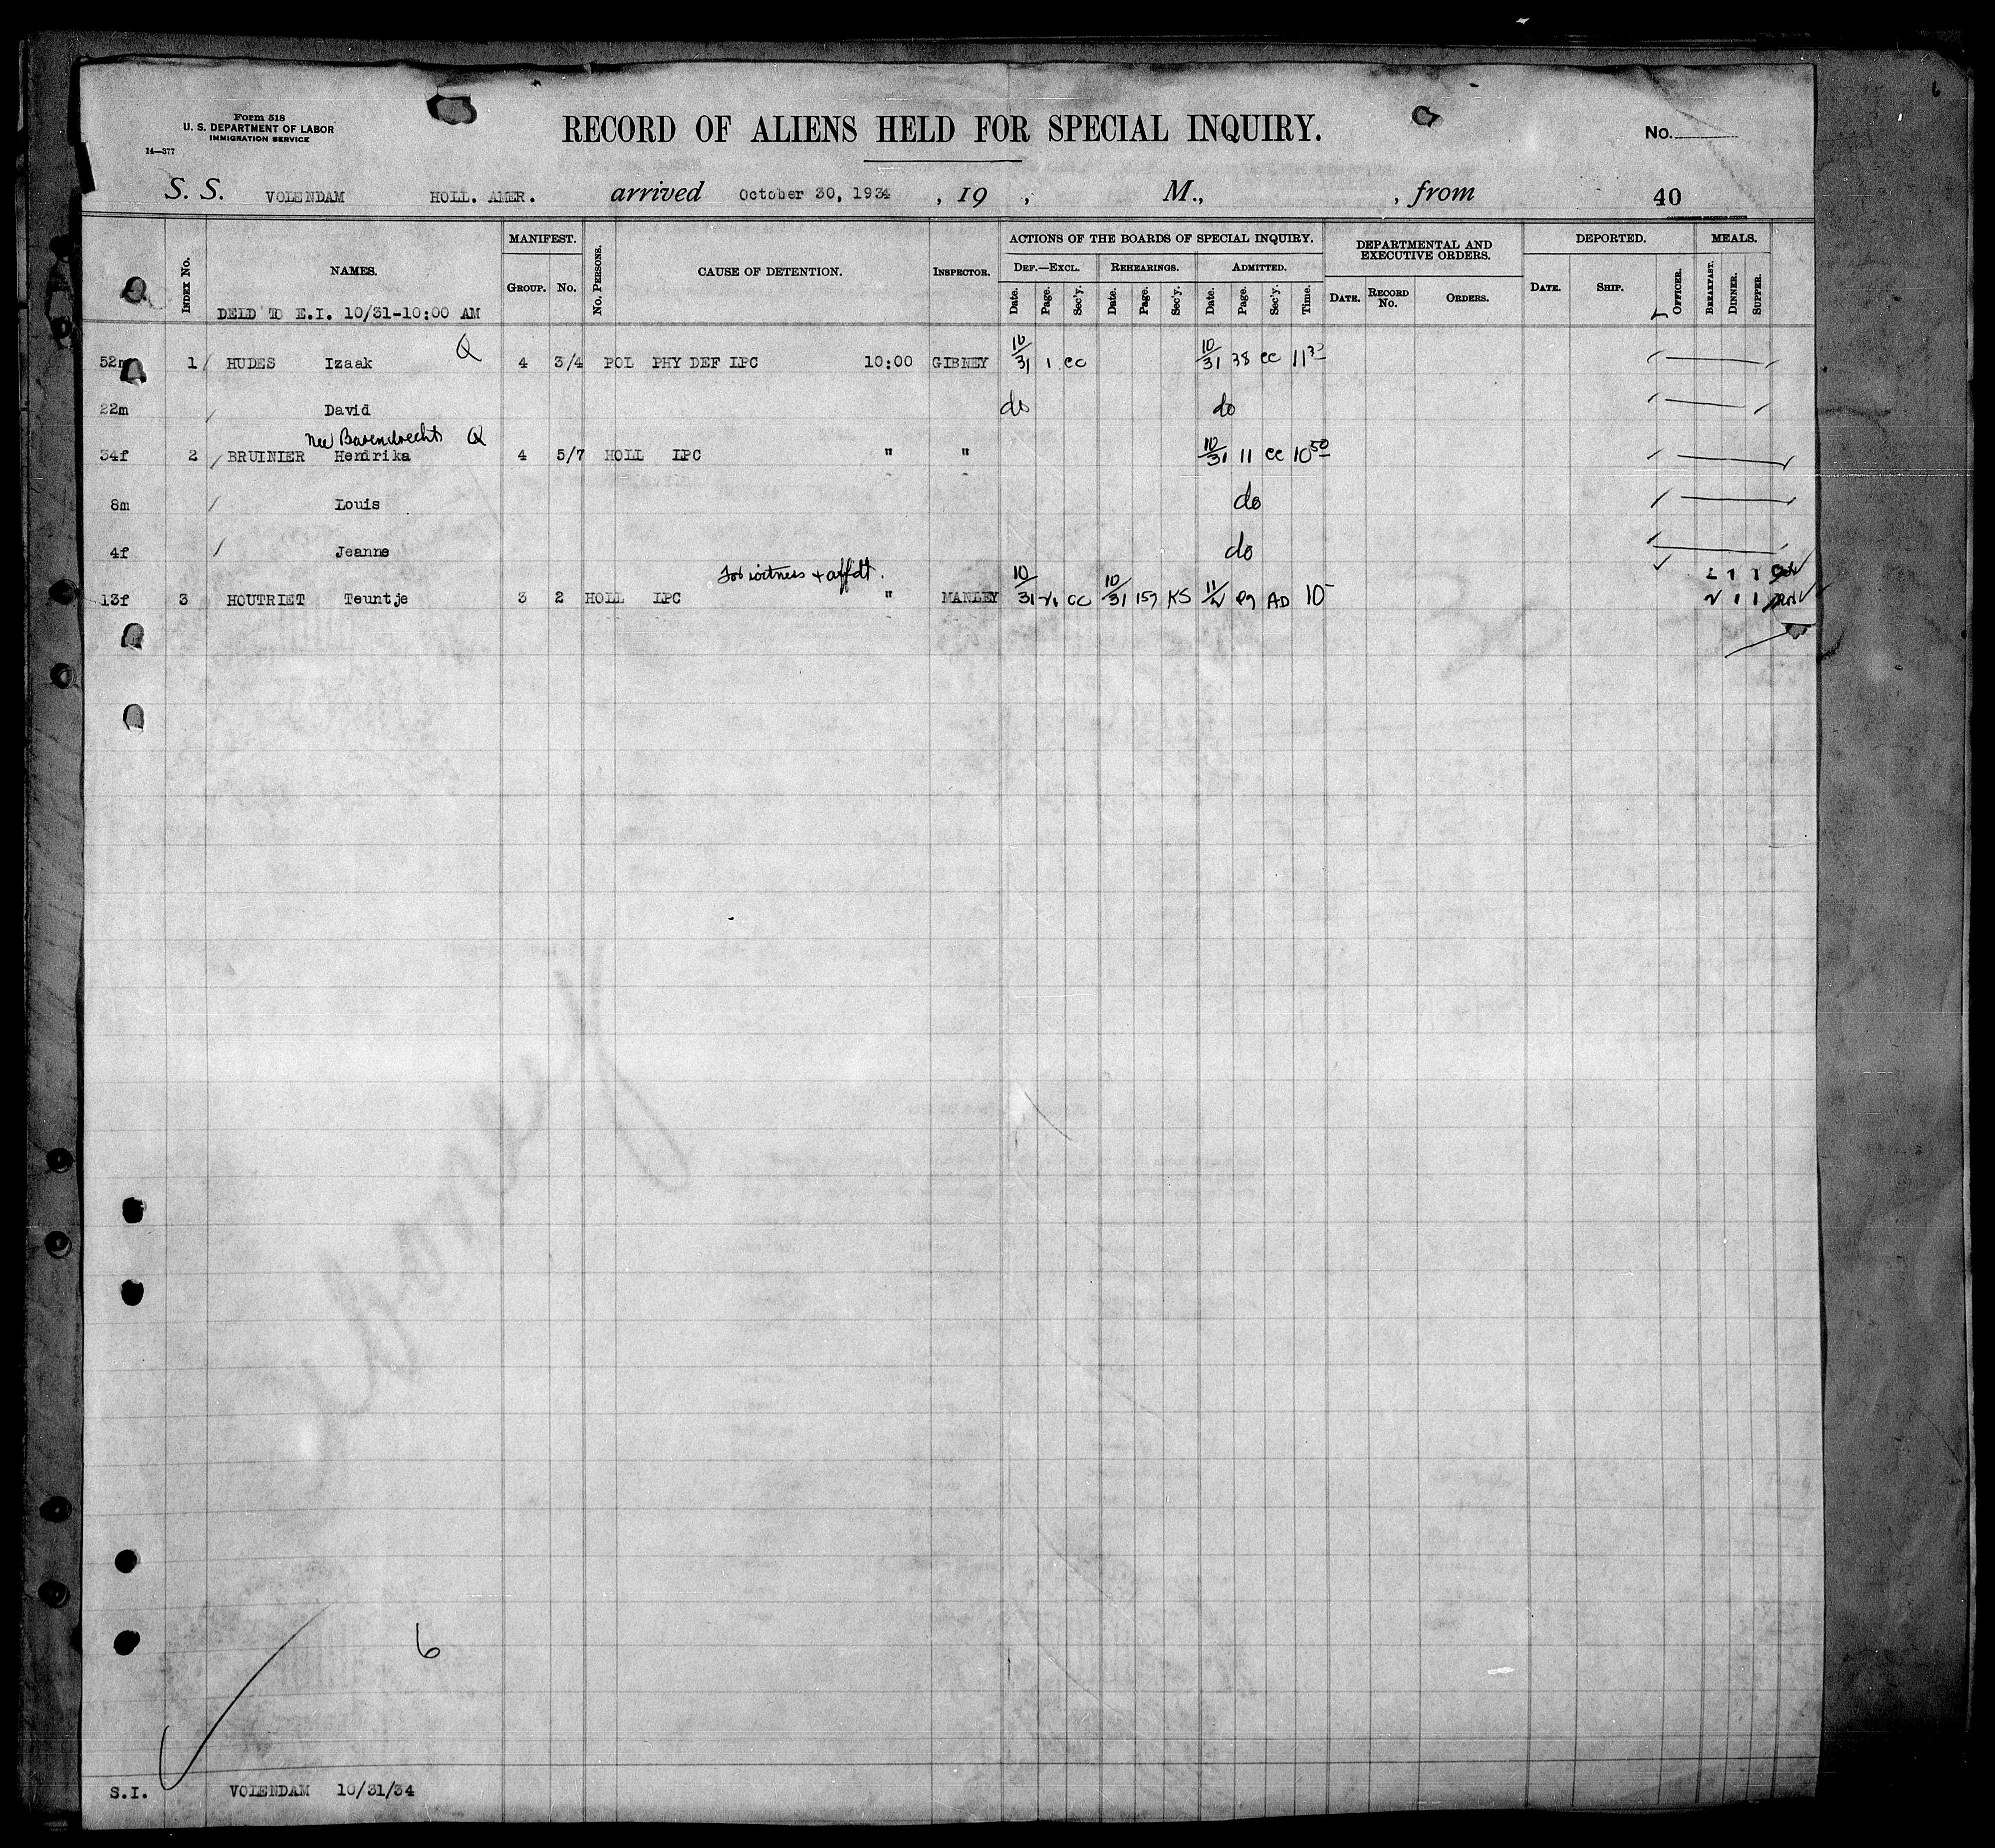 Form 518
U. S. DEPARTMENT OF LABOR
IMMIGRATION SERVICE
14—377
RECORD OF ALIENS HELD FOR SPECIAL INQUIRY.
No.
S. S. VOLENDAM HOLL. AMER. arrived October 30, 1934 , 19 , M., , from 40
INDEX No.
NAMES.
DELD TO E.I. 10/31-10:00 AM
MANIFEST.
GROUP. No.
No. PERSONS.
CAUSE OF DETENTION.
INSPECTOR.
ACTIONS OF THE BOARDS OF SPECIAL INQUIRY.
DEF.—EXCL. REHEARINGS. ADMITTED.
Date. Page. Sec'y. Date. Page. Sec'y. Date. Page. Sec'y. Time.
DEPARTMENTAL AND EXECUTIVE ORDERS.
DATE. RECORD No. ORDERS.
DEPORTED.
DATE. SHIP. OFFICER.
MEALS.
BREAKFAST. DINNER. SUPPER.
52m 1 HUDES Izaak Q 4 3/4 POL PHY DEF LPC 10:00 GIBNEY 10/31 1 CC 10/31 38 CC
22m David do do
nee Barendrecht Q
34f 2 BRUINIER Hendrika 4 5/7 HOLL LPC " " 10/31 11 CC 10 50
8m Louis do
4f Jeanne do
for witness + affdt.
13f 3 HOUTRIET Teuntje 3 2 HOLL LPC " MANLEY 10/31 CC 10/31 157 KS AD 10
6
S.I. VOLENDAM 10/31/34